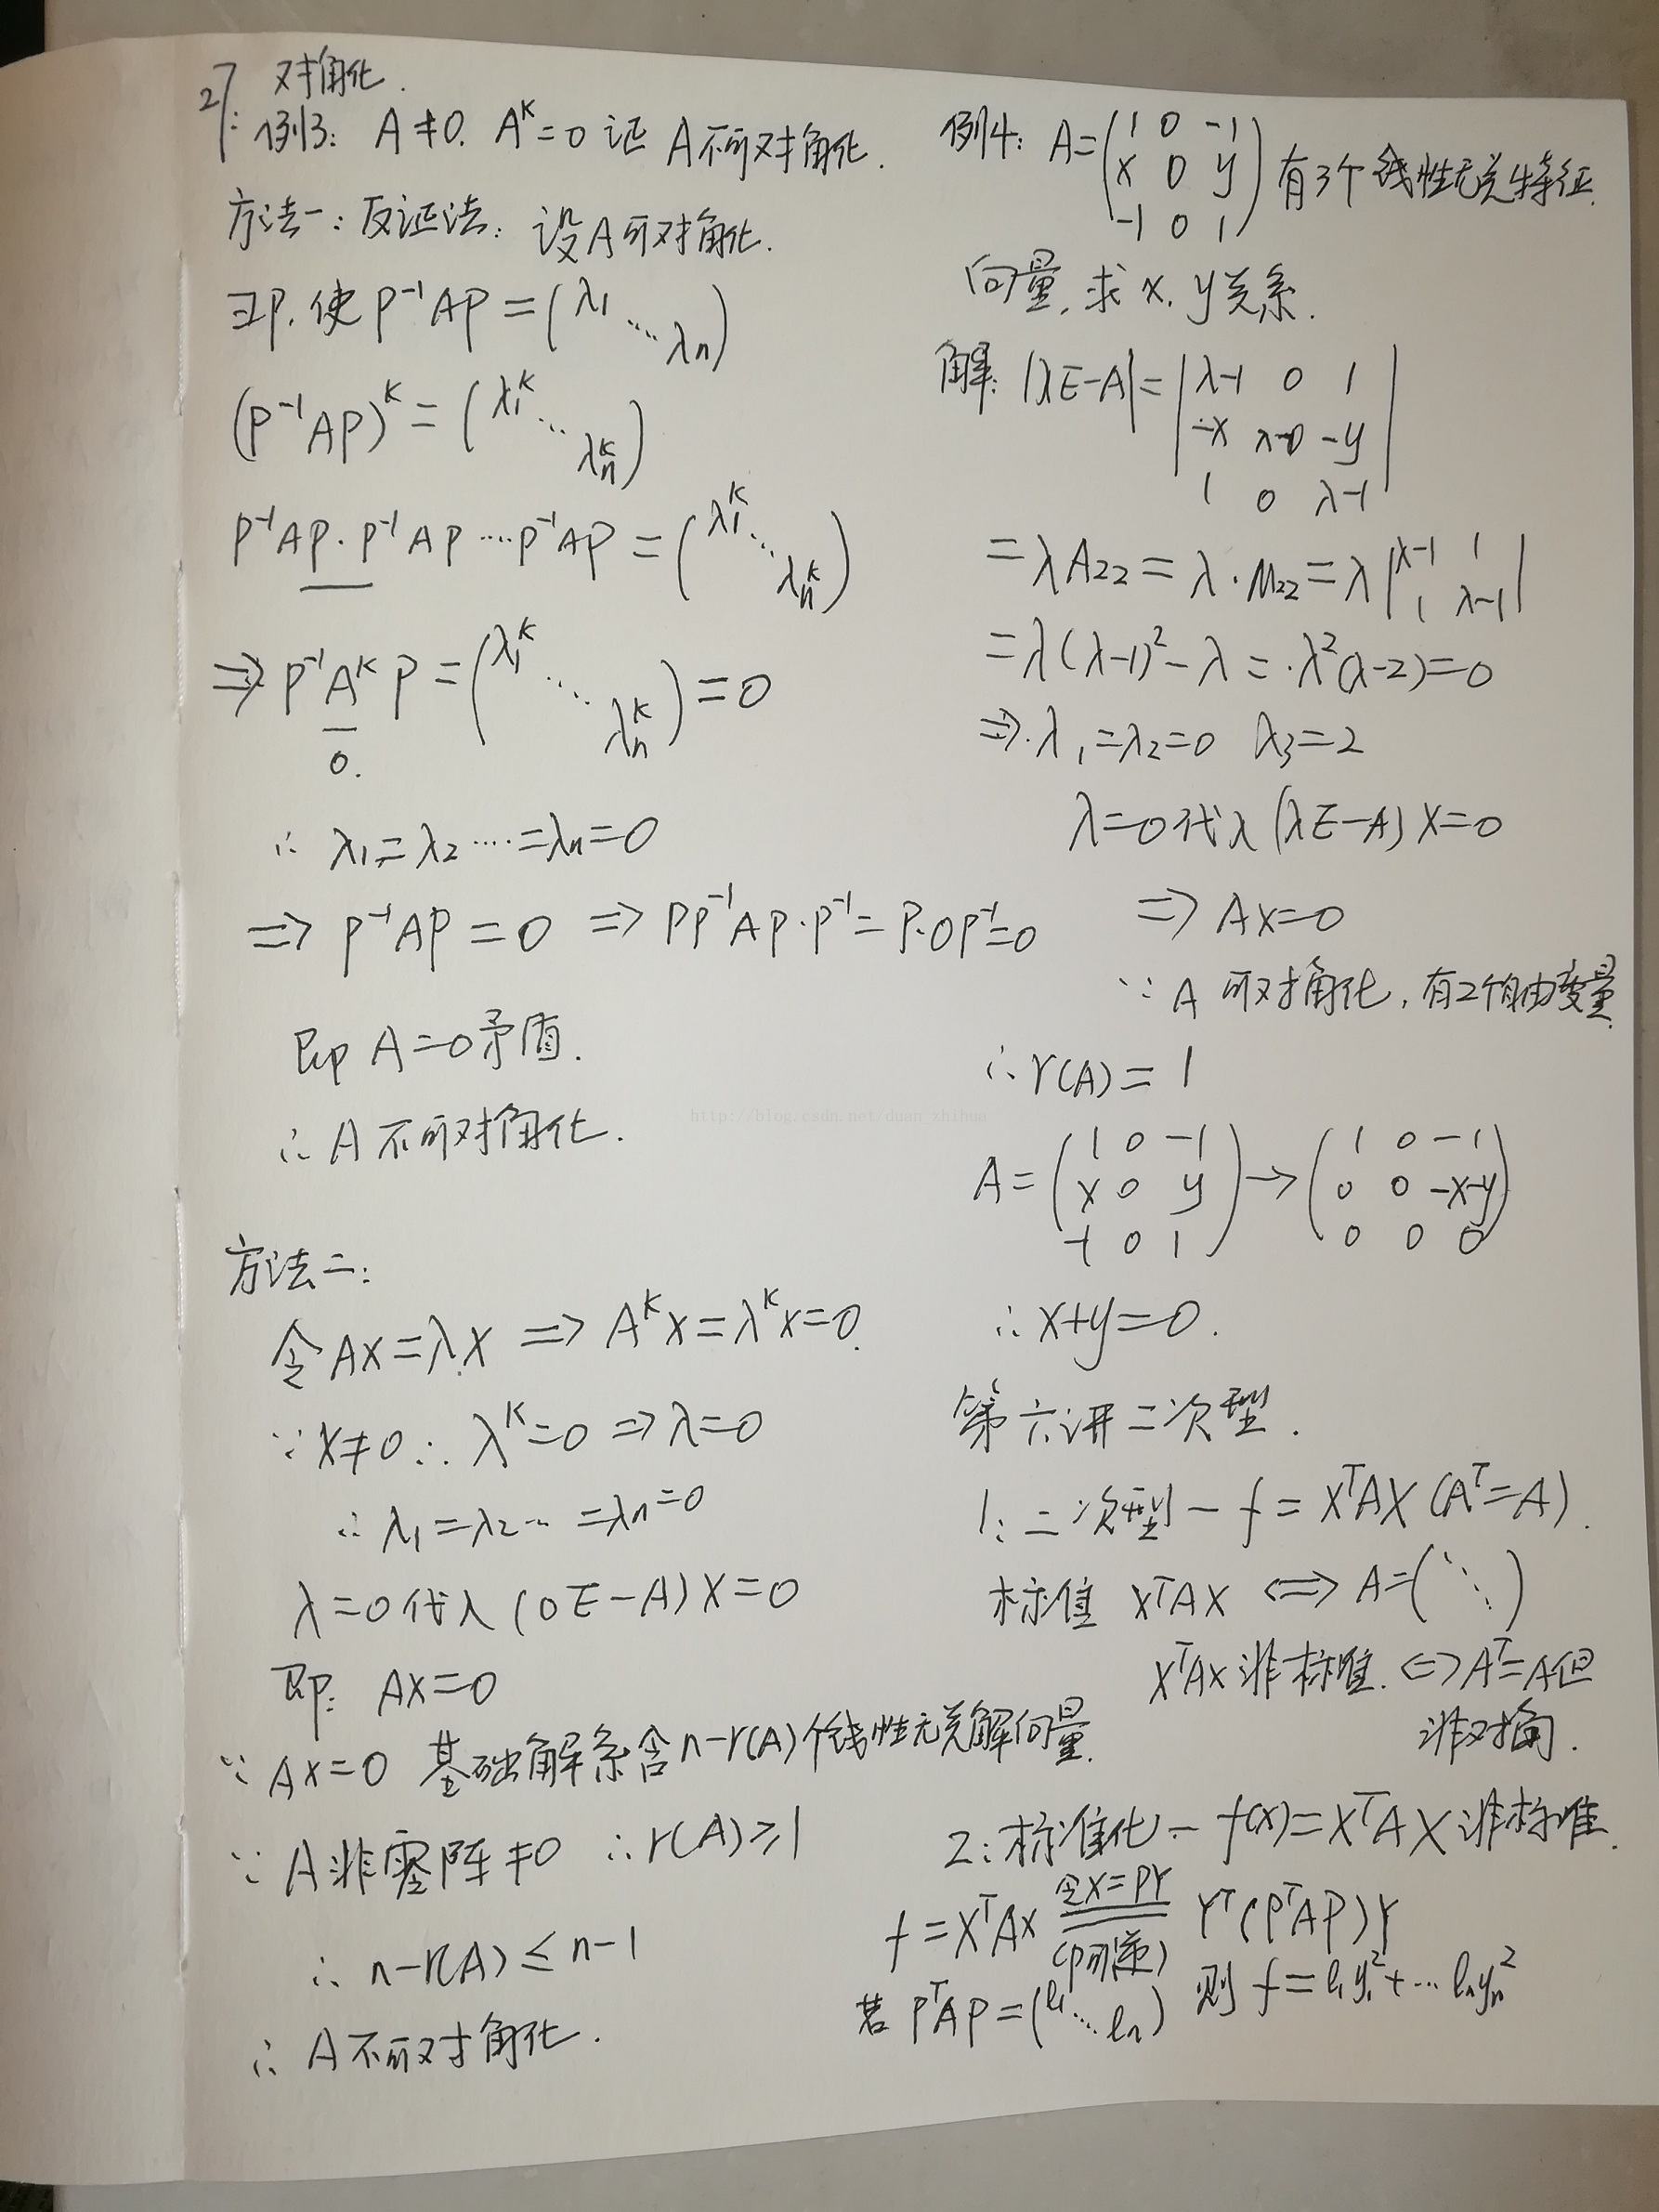 27: 对角化.
例3: A≠0. A^K=0 证 A不可对角化.
方法一: 反证法: 设A可对角化.
∃P. 使 P⁻¹AP=(λ₁ ⋱ λn)
(P⁻¹AP)^K=(λ₁^K ⋱ λn^K)
P⁻¹AP·P⁻¹AP…P⁻¹AP=(λ₁^K ⋱ λn^K)
⇒ P⁻¹A^K P=(λ₁^K ⋱ λn^K)=0
0.
∴ λ₁=λ₂….=λn=0
⇒ P⁻¹AP=0 ⇒ PP⁻¹AP·P⁻¹=P·0P⁻¹=0
即 A=0矛盾.
∴ A不可对角化.
方法二:
令AX=λX ⇒ A^K X=λ^K X=0.
∵X≠0∴ λ^K=0⇒λ=0
∴ λ₁=λ₂… =λn=0
λ=0代入 (0E-A)X=0
即: AX=0
∵ AX=0 基础解系含n-r(A)个线性无关解向量.
∵ A非零阵≠0 ∴r(A)≥1
∴ n-r(A)≤n-1
∴ A不可对角化.
例4: A=(1 0 -1
x 0 y
-1 0 1) 有3个线性无关特征
向量,求x,y关系.
解: |λE-A|=|λ-1 0 1
-x λ-0 -y
1 0 λ-1|
=λA₂₂=λ·M₂₂=λ|λ-1 1
1 λ-1|
=λ(λ-1)²-λ=λ²(λ-2)=0
⇒λ₁=λ₂=0 λ₃=2
λ=0代入(λE-A)X=0
⇒ AX=0
∵ A 可对角化,有2个自由变量.
∴r(A)=1
A=(1 0 -1
x 0 y
-1 0 1)→(1 0 -1
0 0 -x-y
0 0 0)
∴x+y=0.
第六讲二次型.
1: 二次型 — f=XᵀAX (Aᵀ=A).
标准 XᵀAX ⇔ A=(⋱)
XᵀAX非标准. ⇔Aᵀ=A但
非对角.
2: 标准化 — f(x)=XᵀAX非标准.
f=XᵀAX 令X=PY (P可逆) Yᵀ(PᵀAP)Y
若 PᵀAP=(l₁ ⋱ ln) 则 f=l₁y₁²+…lnyn²
http://blog.csdn.net/duan_zhihua